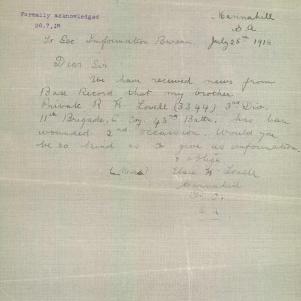 Formally acknowledged
26.7.18
Cannahill
S.A
July 25th 1918
To Soc Information Bureau.
Dear Sir
We have received news from
Base Record that my brother
Private R H Lovell (3344) 3rd Div.
11th Brigade, C Coy. 43rd Battn. has been
wounded 2nd occassion. Would you
be so kind as to give us information
& oblige
(Miss) Elsie H Lovell
Cannahill
S. A.